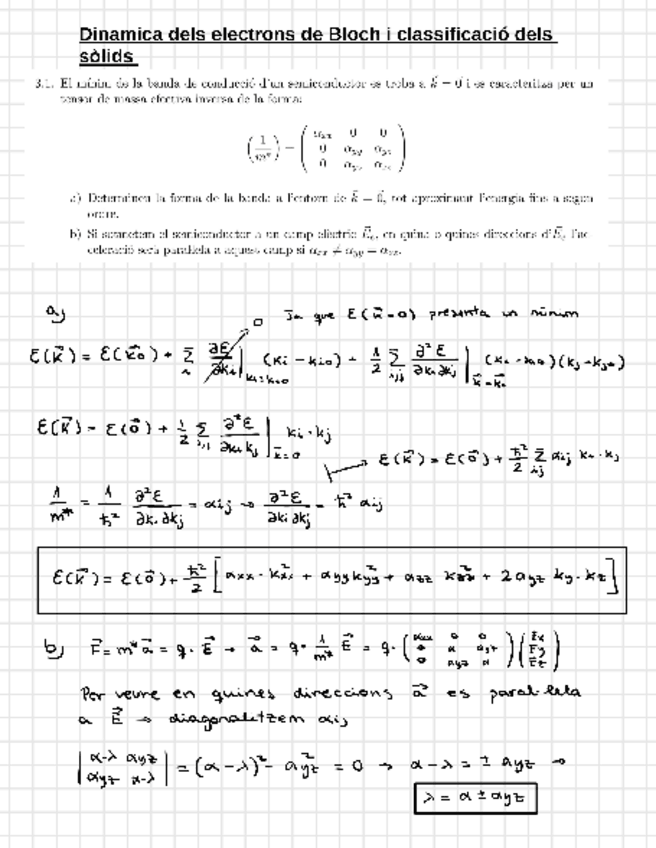 Dinamica dels electrons de Bloch i classificació dels
sòlids
3.1. El mínim de la banda de conducció d'un semiconductor es troba a k⃗ = 0 i es caracteritza per un
tensor de massa efectiva inversa de la forma:
(1/m*) = ( αxx 0 0
0 αyy αyz
0 αyz αzz )
a) Determineu la forma de la banda a l'entorn de k⃗ = 0⃗, tot aproximant l'energia fins a segon
ordre.
b) Si sotmetem el semiconductor a un camp elèctric E⃗, en quina o quines direccions d'E⃗, l'ac-
celeració serà paral·lela a aquest camp si αxx ≠ αyy = αzz.
a) 0 Ja que E(k⃗=0) presenta un mínim
E(k⃗) = E(k⃗o) + Σi ∂E/∂ki |ki=kio (ki - kio) + 1/2 Σi,j ∂²E/∂ki∂kj |k⃗=k⃗o (ki - kio)(kj - kjo)
E(k⃗) = E(0⃗) + 1/2 Σi,j ∂²E/∂ki kj |k⃗=0 ki · kj
E(k⃗) = E(0⃗) + ħ²/2 Σij αij ki · kj
1/m* = 1/ħ² ∂²E/∂ki ∂kj = αij → ∂²E/∂ki ∂kj = ħ² αij
E(k⃗) = E(0⃗) + ħ²/2 [αxx · k²xx + αyy k²yy + αzz k²zz + 2αyz ky · kz]
b) F⃗ = m* a⃗ = q · E⃗ → a⃗ = q · 1/m* E⃗ = q · ( αxx 0 0
0 α αyz
0 αyz α ) ( Ex
Ey
Ez )
Per veure en quines direccions a⃗ es paral·lela
a E⃗ → diagonalitzem αij
| α-λ αyz
αyz α-λ | = (α - λ)² - α²yz = 0 → α - λ = ± αyz →
λ = α ± αyz